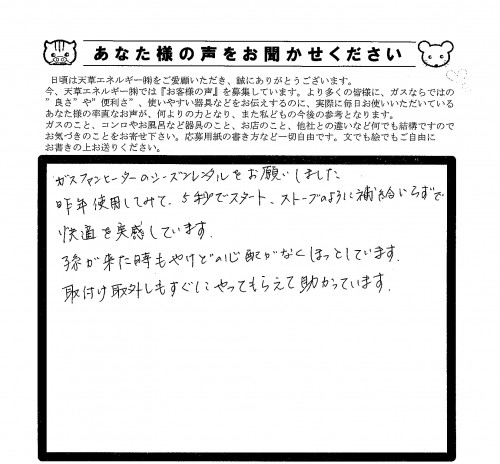 あなた様の声をお聞かせください
日頃は天草エネルギー㈱をご愛顧いただき、誠にありがとうございます。
今、天草エネルギー㈱では『お客様の声』を募集しています。より多くの皆様に、ガスならではの
"良さ"や"便利さ"、使いやすい器具などをお伝えするのに、実際に毎日お使いいただいている
あなた様の率直なお声が、何よりの力となり、また私どもの今後の参考となります。
ガスのこと、コンロやお風呂など器具のこと、お店のこと、他社との違いなど何でも結構ですので
お気づきのことをお寄せ下さい。応募用紙の書き方など一切自由です。文でも絵でもご自由に
お書きの上お送りください。
ガスファンヒーターのシーズンレンタルをお願いしました
昨年使用してみて、5秒でスタート、ストーブのように補給いらずで
快適を実感しています.
孫が来た時もやけどの心配がなくほっとしています.
取付け取外しもすぐにやってもらえて助かっています.